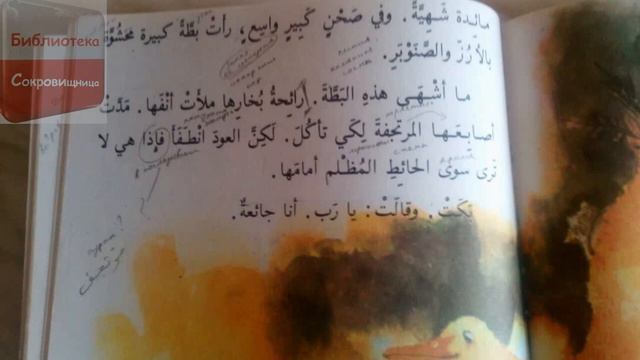 Библиотека
Сокровищница
مائِدة شَهِيَّةً. وفي صَحْنٍ كَبيرٍ واسِعٍ، رأتْ بطَّةً كبيرة محْشُوَّةً
بالأرُزّ والصَّنَوْبَرِ.
ما أشْهَى هذِهِ البَطَّةَ. رائِحةُ بُخارِها ملأتْ أنْفَها. مَدَّتْ
أصابِعَها المرتَجفةَ لِكَي تأكُلَ. لَكِنَّ العودَ انْطَفَأ فإذا هي لا
تَرى سِوَى الحائِطِ المُظْلم أمامَها.
بَكَتْ. وقالَتْ: يا رَب. أنا جائعةٌ.
مرتجف